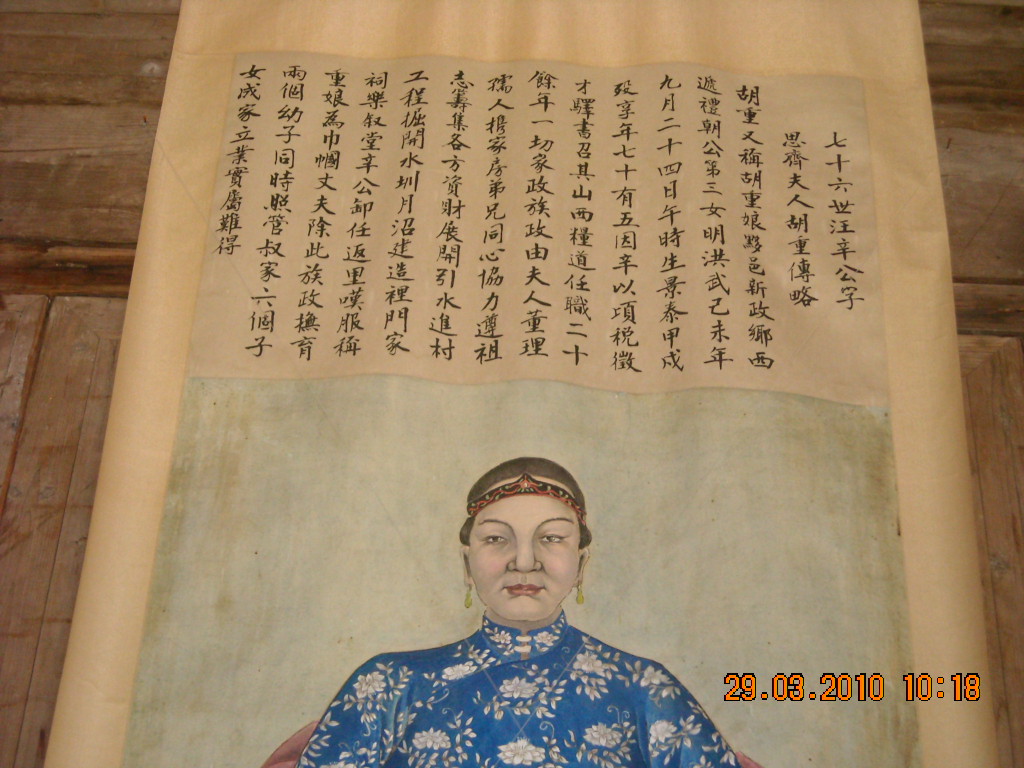 七十六世汪辛公字
思齊夫人胡重傳略
胡重又稱胡重娘黟邑新政鄉西
遞禮朝公第三女明洪武己未年
九月二十四日午時生景泰甲戌
歿享年七十有五因辛以項税徵
才驛書召其山西糧道任職二十
餘年一切家政族政由夫人董理
孺人携家房弟兄同心協力遵祖
志籌集各方資財展開引水進村
工程掘開水圳月沼建造裡門家
祠樂叙堂辛公卸任返里嘆服稱
重娘為巾幗丈夫除此族政撫育
兩個幼子同時照管叔家六個子
女成家立業實屬難得
29.03.2010 10:18